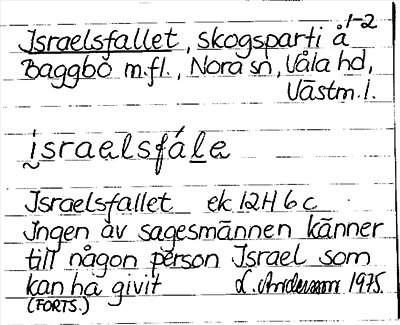 1-2
Israelsfallet, skogsparti å
Baggbo m.fl., Nora sn, Våla hd,
Västm. l.
israelsfále
Israelsfallet ek 12H 6c
Ingen av sagesmännen känner
till någon person Israel som
kan ha givit L. Andersson 1975.
(FORTS.)